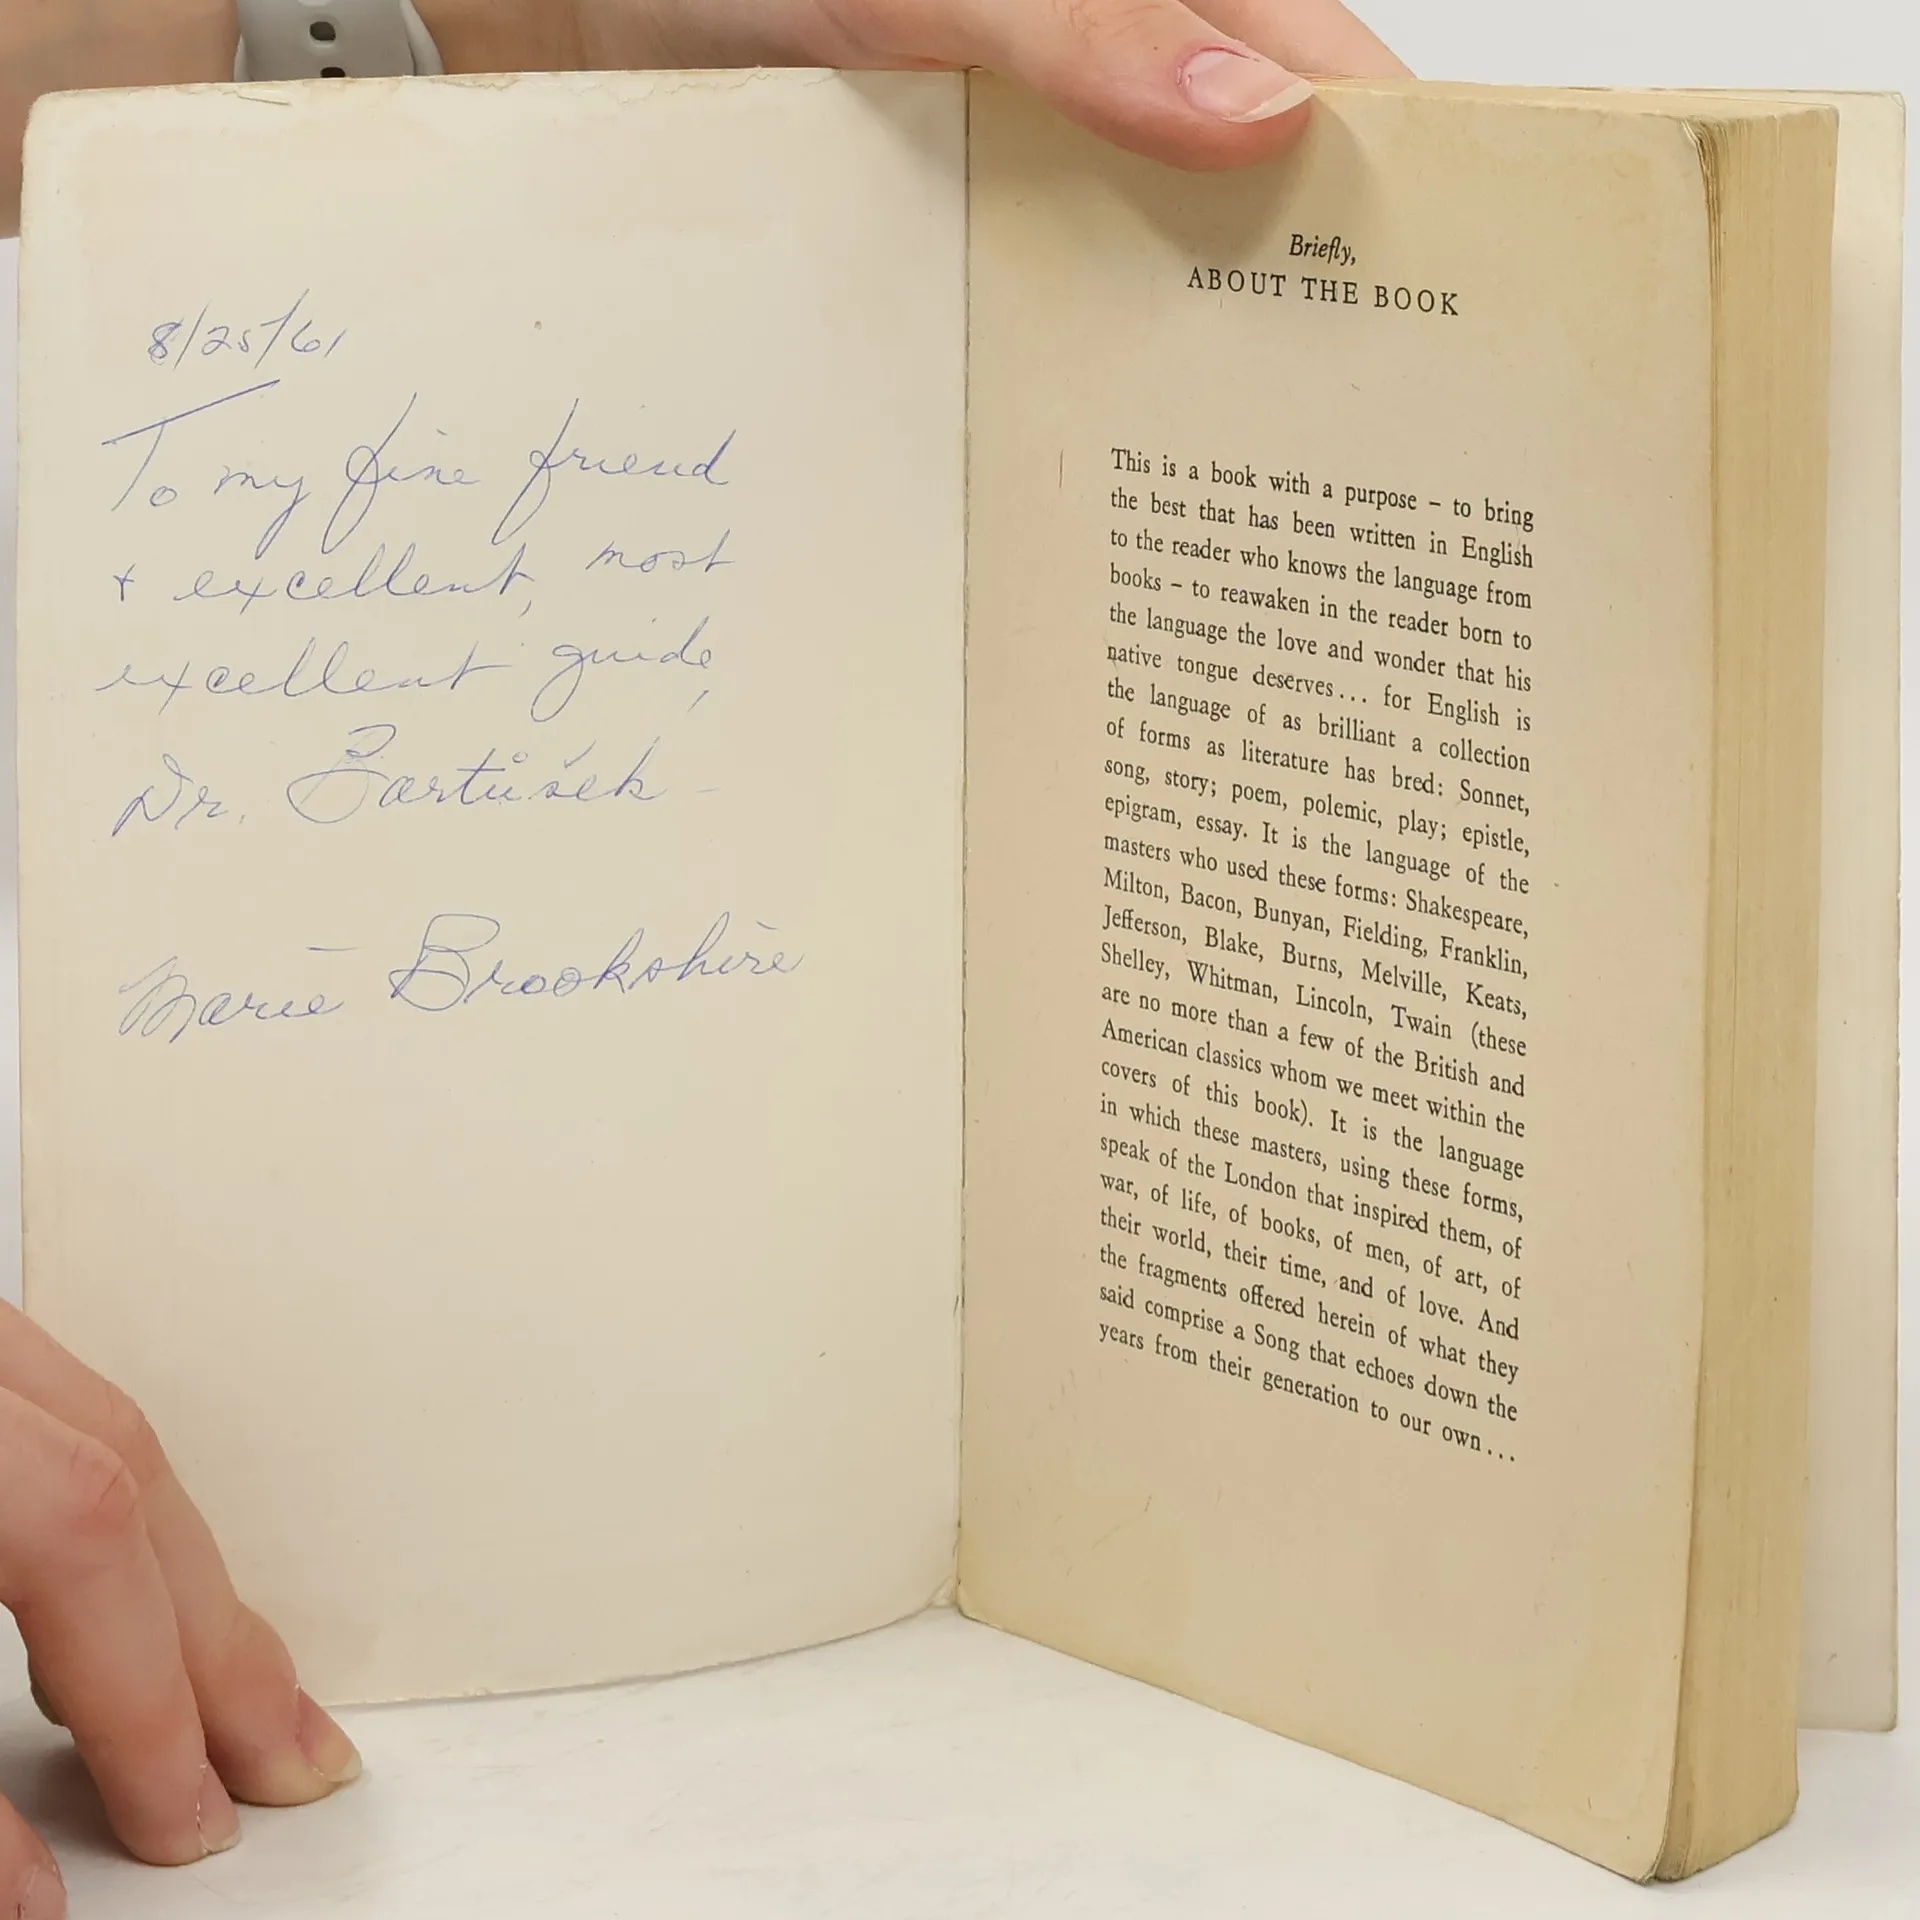 8/25/61
To my fine friend
+ excellent, most
excellent guide,
Dr. Bartůšek -
Marie Brookshire
Briefly,
ABOUT THE BOOK
This is a book with a purpose – to bring
the best that has been written in English
to the reader who knows the language from
books – to reawaken in the reader born to
the language the love and wonder that his
native tongue deserves... for English is
the language of as brilliant a collection
of forms as literature has bred: Sonnet,
song, story; poem, polemic, play; epistle,
epigram, essay. It is the language of the
masters who used these forms: Shakespeare,
Milton, Bacon, Bunyan, Fielding, Franklin,
Jefferson, Blake, Burns, Melville, Keats,
Shelley, Whitman, Lincoln, Twain (these
are no more than a few of the British and
American classics whom we meet within the
covers of this book). It is the language
in which these masters, using these forms,
speak of the London that inspired them, of
war, of life, of books, of men, of art, of
their world, their time, and of love. And
the fragments offered herein of what they
said comprise a Song that echoes down the
years from their generation to our own...